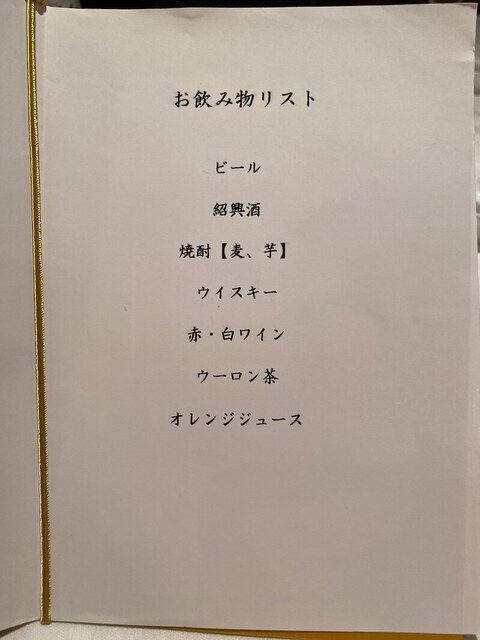 お飲み物リスト
ビール
紹興酒
焼酎【麦、芋】
ウイスキー
赤・白ワイン
ウーロン茶
オレンジジュース